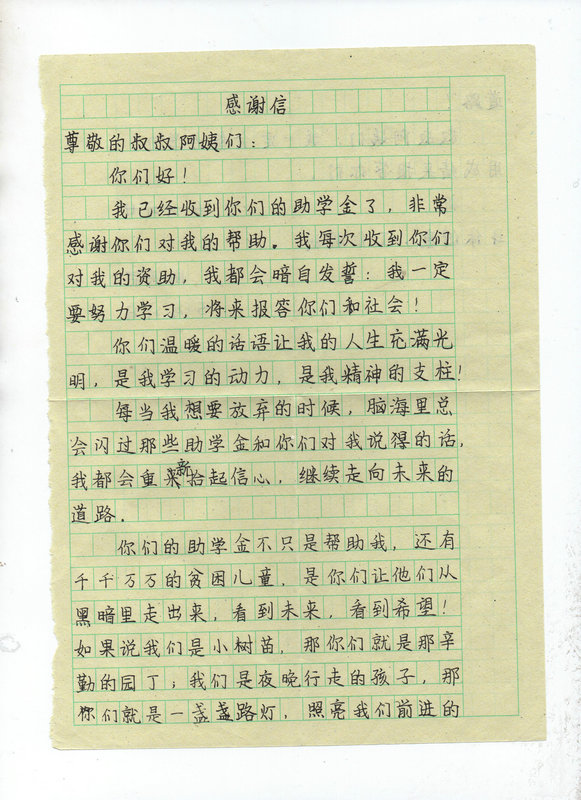 感谢信
尊敬的叔叔阿姨们：
你们好！
我已经收到你们的助学金了，非常
感谢你们对我的帮助。我每次收到你们
对我的资助，我都会暗自发誓：我一定
要努力学习，将来报答你们和社会！
你们温暖的话语让我的人生充满光
明，是我学习的动力，是我精神的支柱！
每当我想要放弃的时候，脑海里总
会闪过那些助学金和你们对我说得的话，
我都会重新拾起信心，继续走向未来的
道路．
你们的助学金不只是帮助我，还有
千千万万的贫困儿童，是你们让他们从
黑暗里走出来，看到未来，看到希望！
如果说我们是小树苗，那你们就是那辛
勤的园丁；我们是夜晚行走的孩子，那
你们就是一盏盏路灯，照亮我们前进的